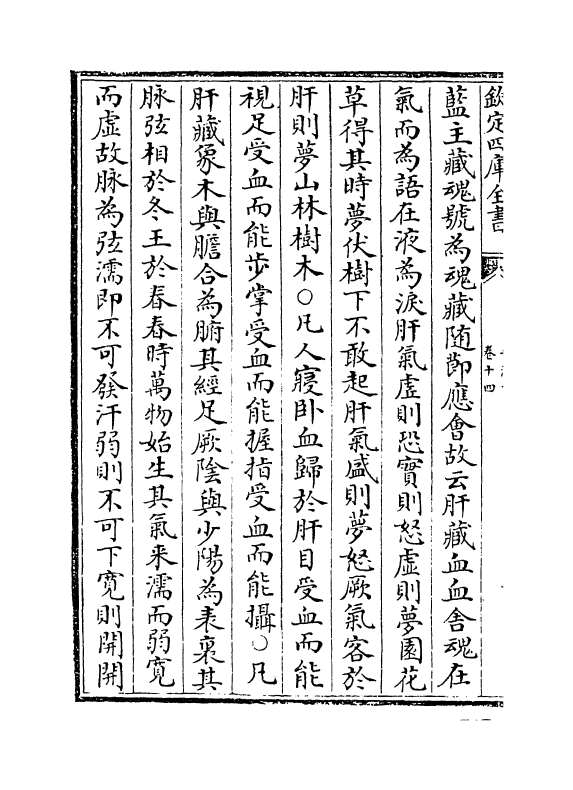 欽定四庫全書
卷十四
藍主藏魂號為魂藏随節應會故云肝藏血血舎魂在
氣而為語在液為淚肝氣虛則恐實則怒虛則夢園花
草得其時夢伏樹下不敢起肝氣盛則夢怒厥氣客於
肝則夢山林樹木○凡人寢卧血歸於肝目受血而能
視足受血而能步掌受血而能握指受血而能攝○凡
肝藏象木與膽合為腑其經足厥陰與少陽為表裏其
脉弦相於冬王於春春時萬物始生其氣来濡而弱寛
而虛故脉為弦濡即不可發汗弱則不可下寛則開開